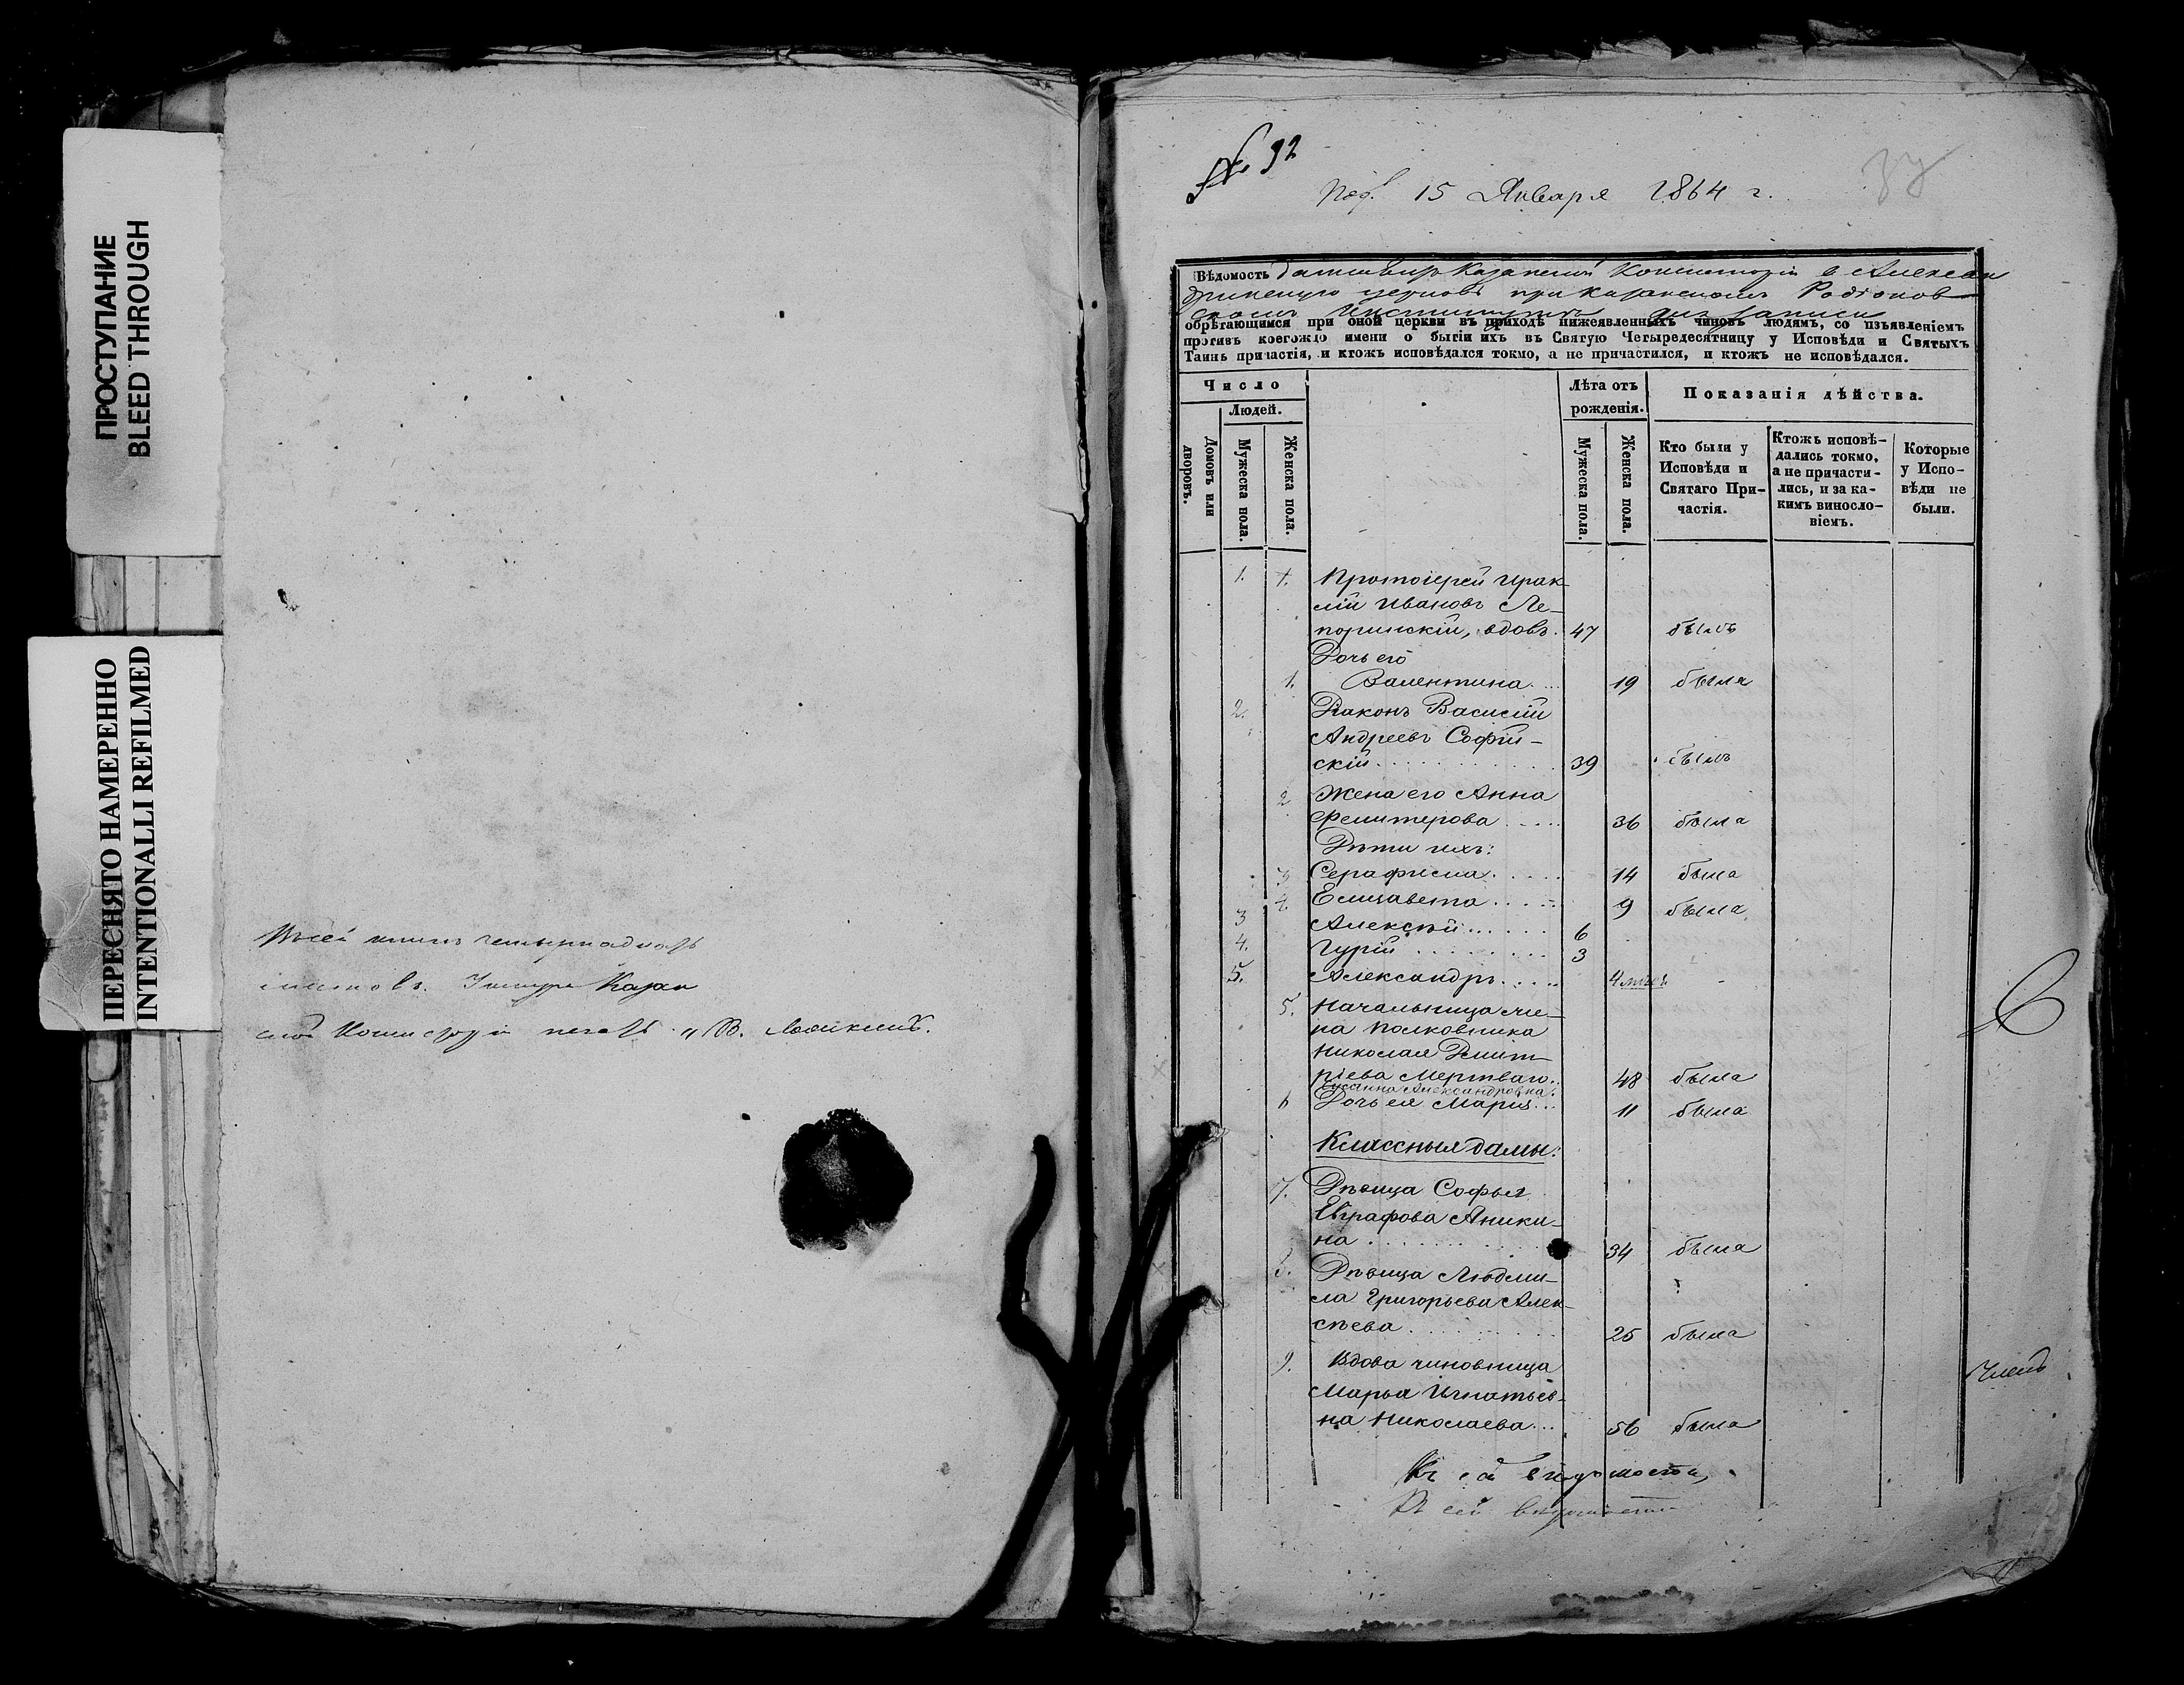 ПРОСТУПАНИЕ
BLEED THROUGH
ПЕРЕСНЯТО НАМЕРЕННО
INTENTIONALLI REFILMED
четырнадцать
листовъ. Каzан
печать
№ 92
15 Января 1864 г.
Вѣдомость Казанской Консисторіи в Алексан
церковь при казанскомъ Родіонов
скомъ Институтѣ для записи
обрѣтающимся при оной церкви въ приходѣ нижеявленныхъ чиновъ людямъ, со изъявленіемъ
противъ коегождо имени о бытіи ихъ въ Святую Четыредесятницу у Исповѣди и Святыхъ
Таинъ причастія, и ктожъ исповѣдался токмо, а не причастился, и ктожъ не исповѣдался.
Число
Людей.
Домовъ или дворовъ.
Мужеска пола.
Женска пола.
Лѣта отъ рожденія.
Мужеска пола.
Женска пола.
Показанія дѣйства.
Кто были у Исповѣди и Святаго При-частія.
Ктожъ исповѣ-дались токмо, а не причасти-лись, и за ка-кимъ винosло-віемъ.
Которые у Испо-вѣди не были.
1. 1. Протоіерей Ирак
лій Ивановъ Ле-
поринскій, вдовъ. 47 былъ
Дочь его
1. Валентина... 19 была
2. Діаконъ Василій
Андреевъ Софій-
скій 39 былъ
2 Жена его Анна
Димитрова 36 была
Дѣти ихъ:
3 Серафима 14 была
4 Елизавета 9 была
3 Алексѣй 6
4. Гурій 3
5. Александръ 4 мѣс.
5. Начальница же-
на Полковника
Николая Дмит-
ріева Мертваго. 48 была
Сусанна Александровна.
6 Дочь ея Марія... 11 была
Классныя дамы:
7. Дѣвица Софья
Евграфова Аники-
на 34 была
8. Дѣвица Людми-
ла Григорьева Алек-
сѣева 25 была
9. Вдова чиновница
Марья Игнатьев-
на Николаева... 56 была
Членъ
Въ сей вѣдомости,
Въ сей вѣдомости